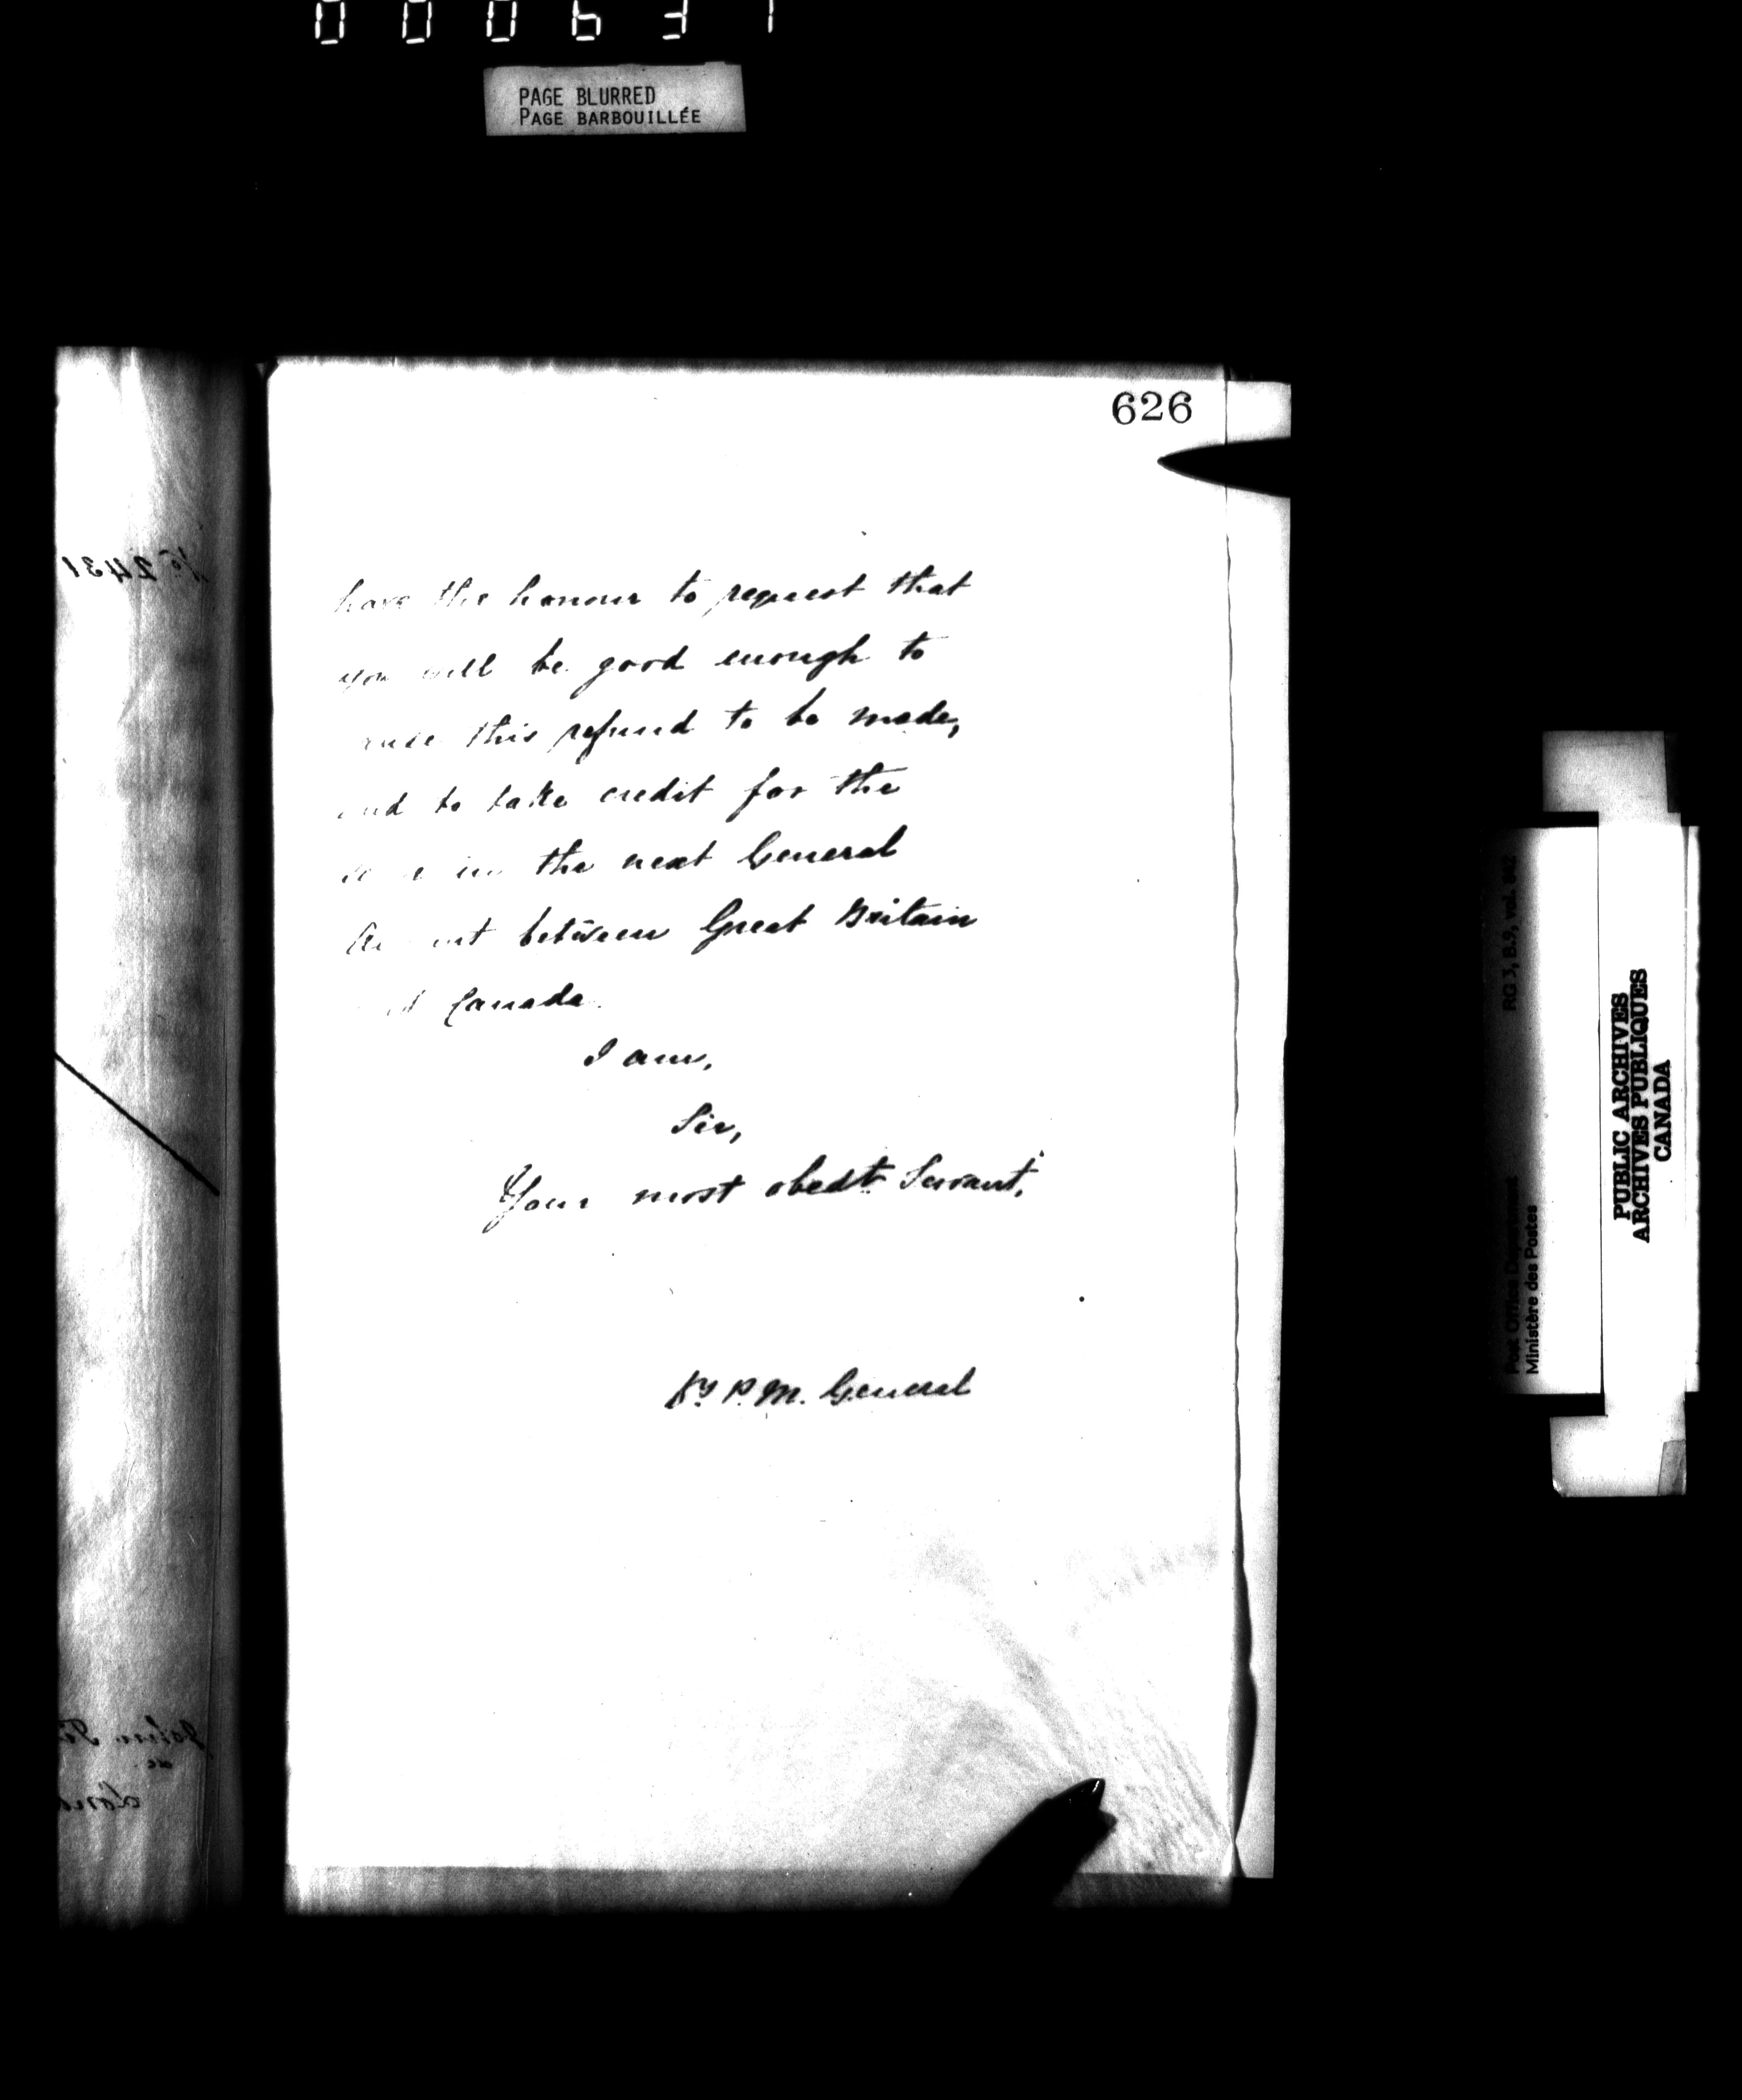 000631
PAGE BLURRED
PAGE BARBOUILLÉE
626
No 2431
have the honour to request that
you will be good enough to
cause this refund to be made,
and to take credit for the
in the next General
Account between Great Britain
and Canada.
I am,
Sir,
Your most obedt Servant,
Dy P.M. General
John
PUBLIC ARCHIVES
ARCHIVES PUBLIQUES
CANADA
RG 3, B.9, vol.
Post Office Department
Ministère des Postes